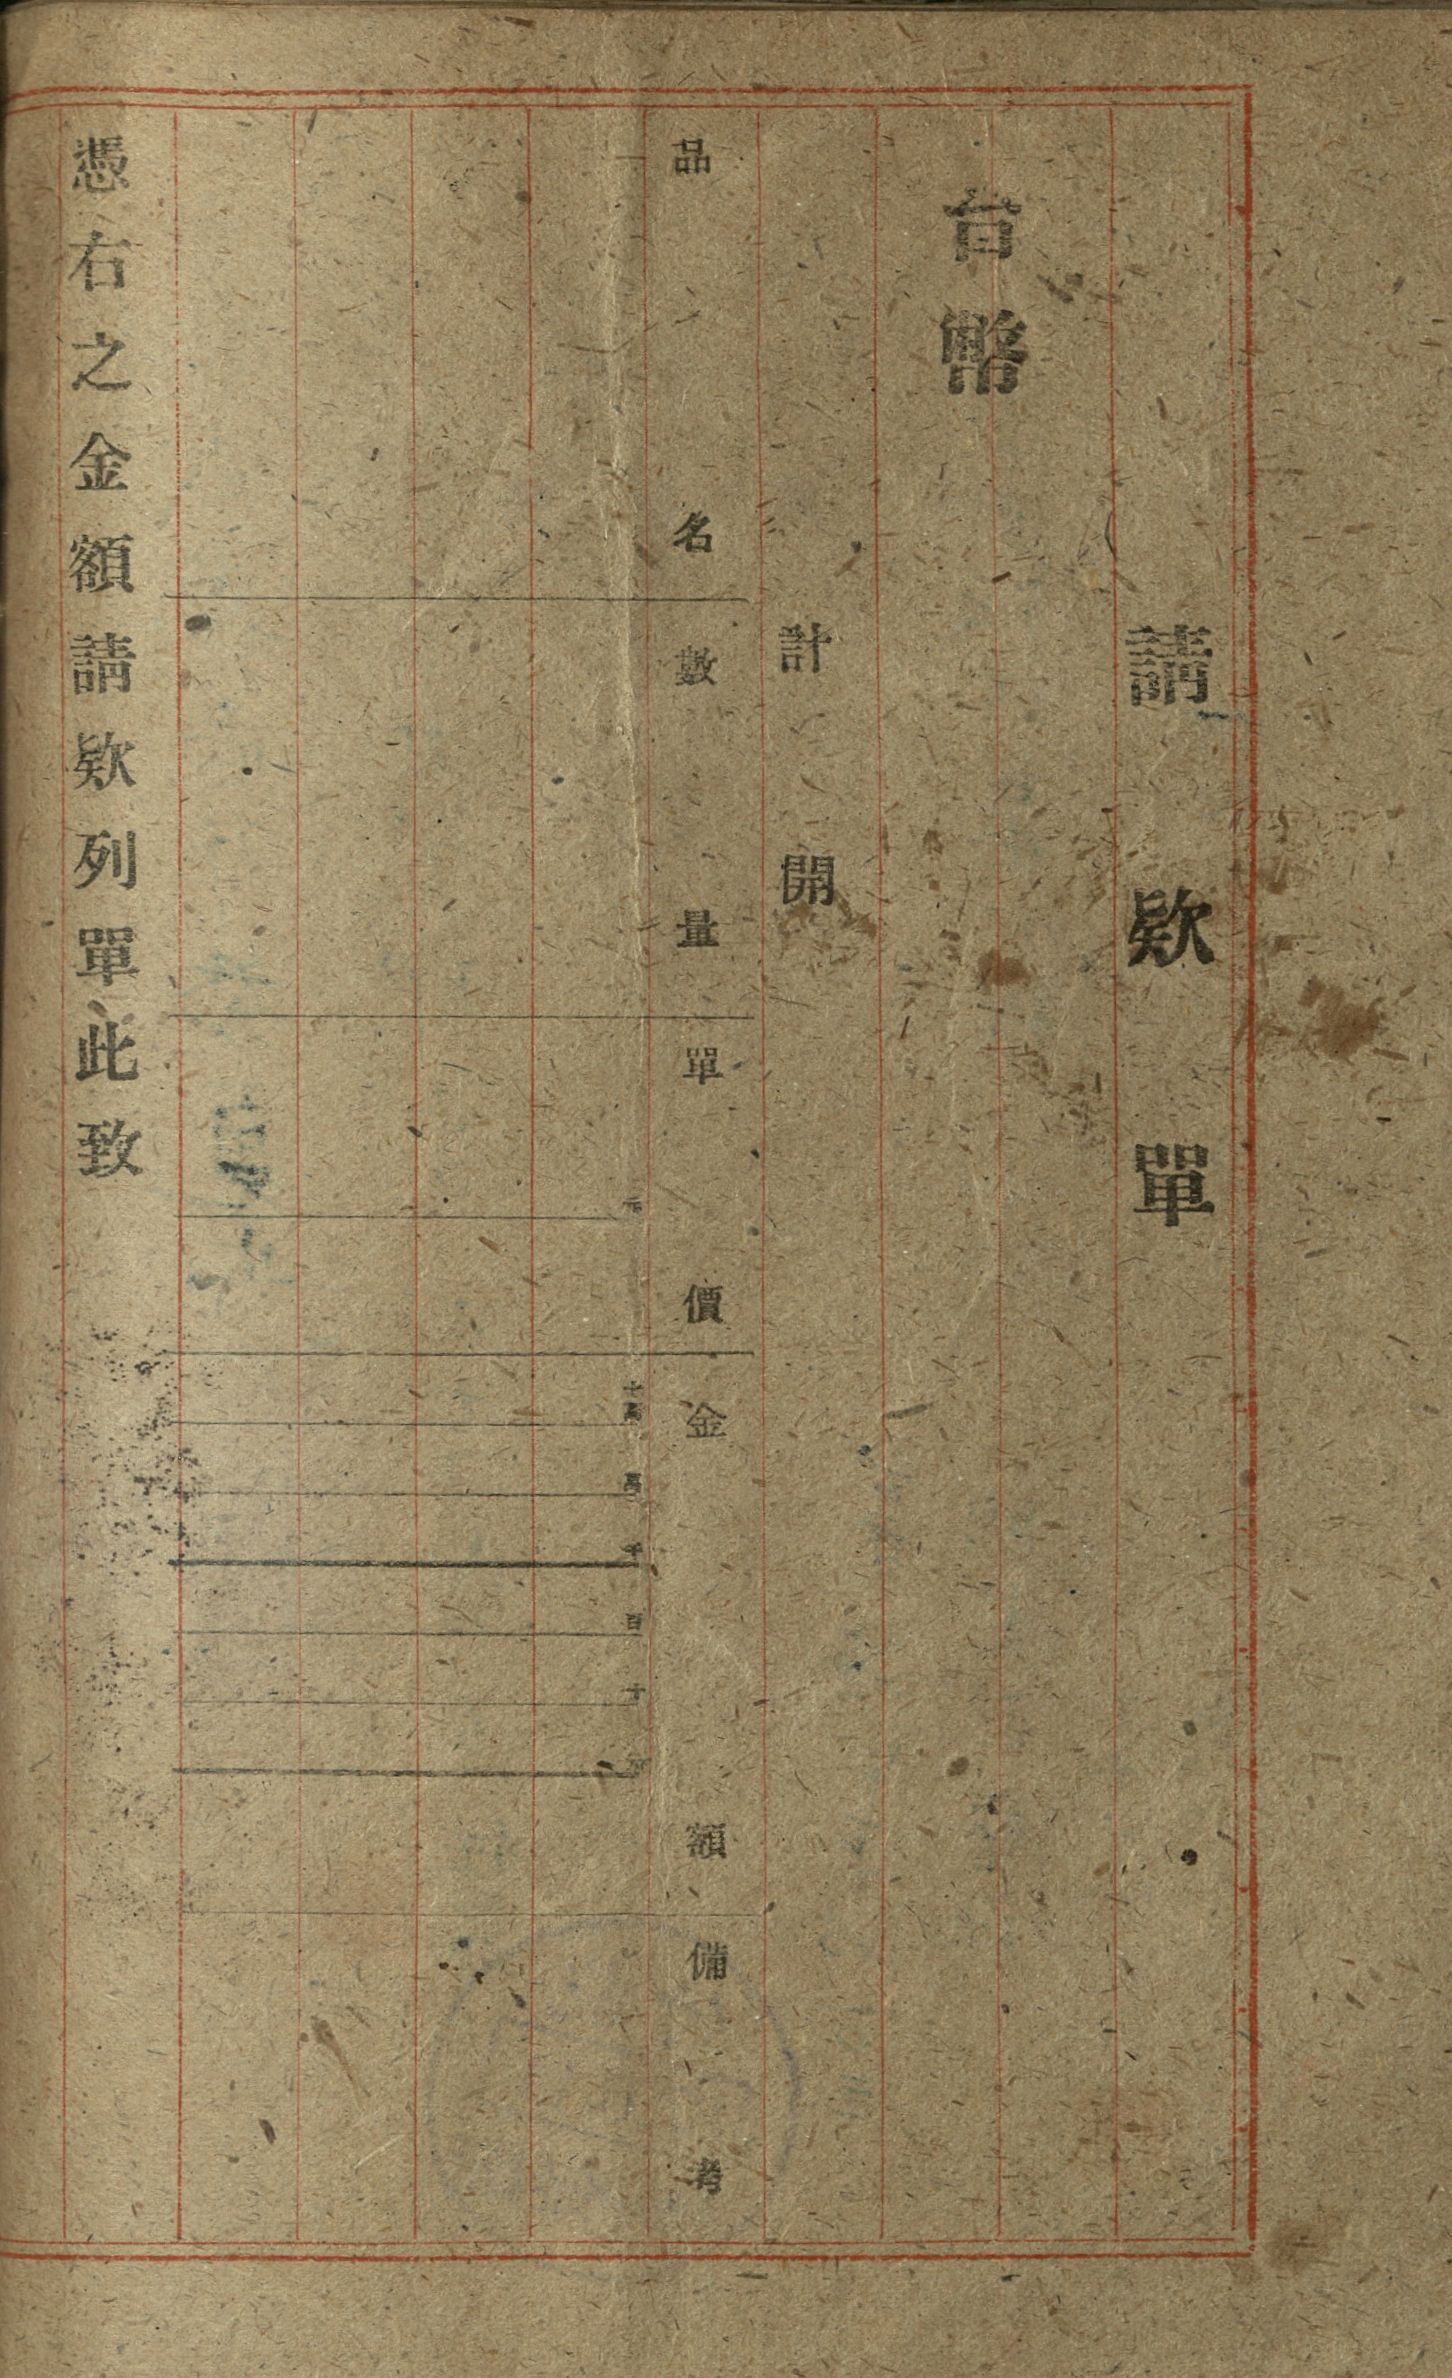 請欵單
台幣
計開
品名 數量 單價 金額 備考
元 十萬 萬 千 百 十 元
憑右之金額請欵列單此致